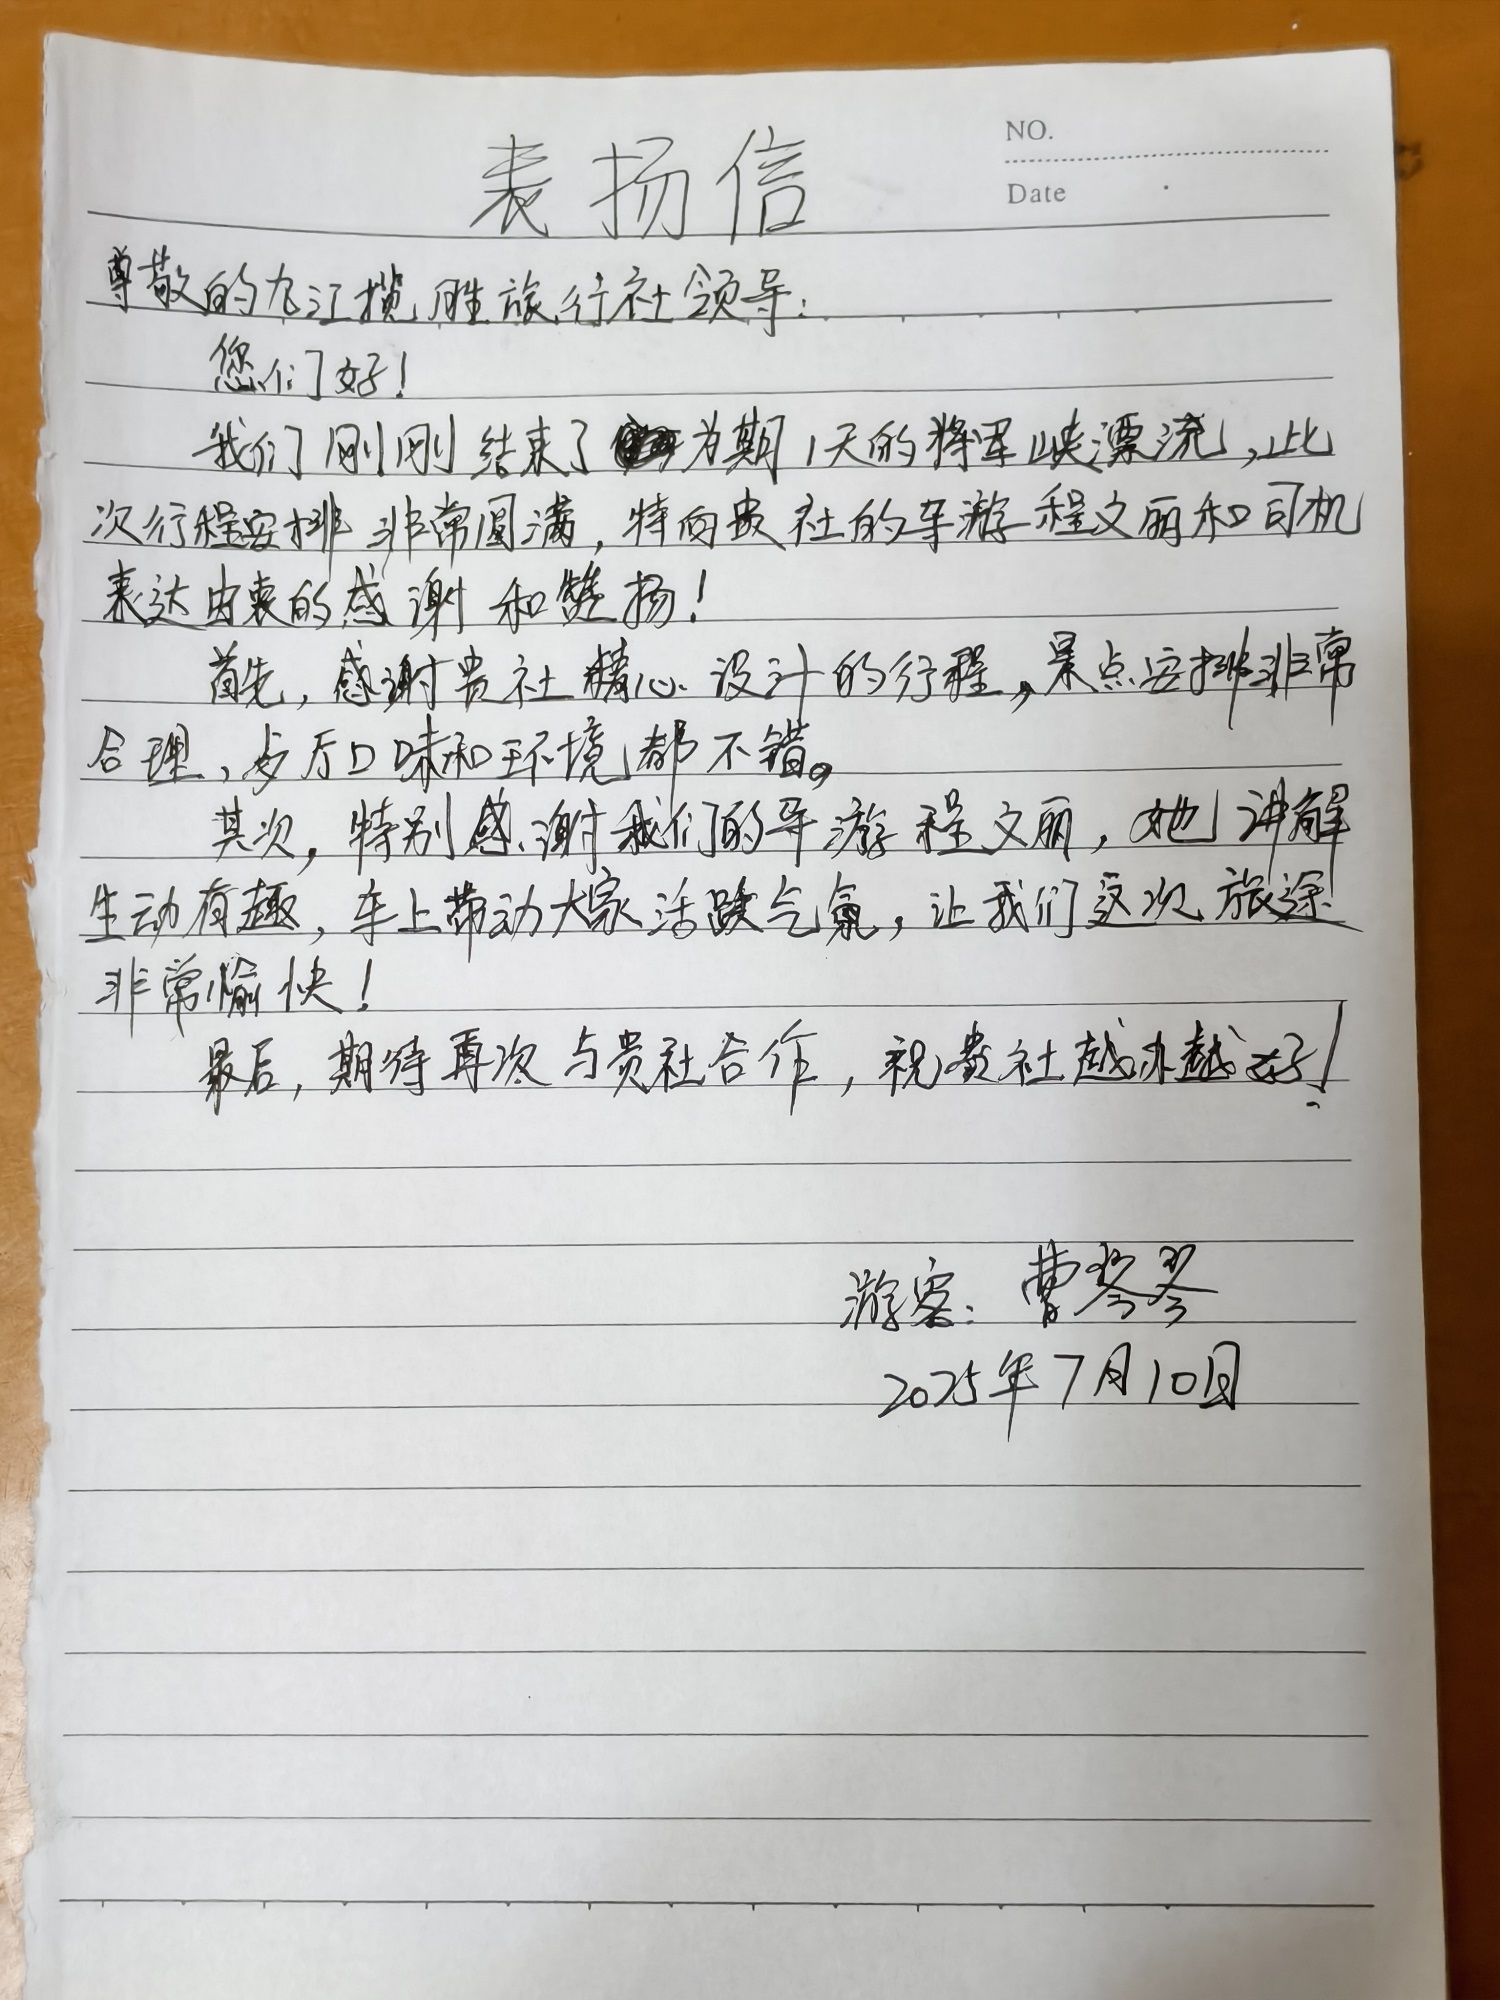 NO.
Date
表扬信
尊敬的九江揽胜旅行社领导：
您们好！
我们刚刚结束了为期1天的将军峡漂流，此
次行程安排非常圆满，特向贵社的导游程文丽和司机
表达由衷的感谢和赞扬！
首先，感谢贵社精心设计的行程，景点安排非常
合理，歺厅口味和环境都不错。
其次，特别感谢我们的导游程文丽，她讲解
生动有趣，车上带动大家活跃气氛，让我们这次旅途
非常愉快！
最后，期待再次与贵社合作，祝贵社越办越好！
游客：曹琴琴
2025年7月10日